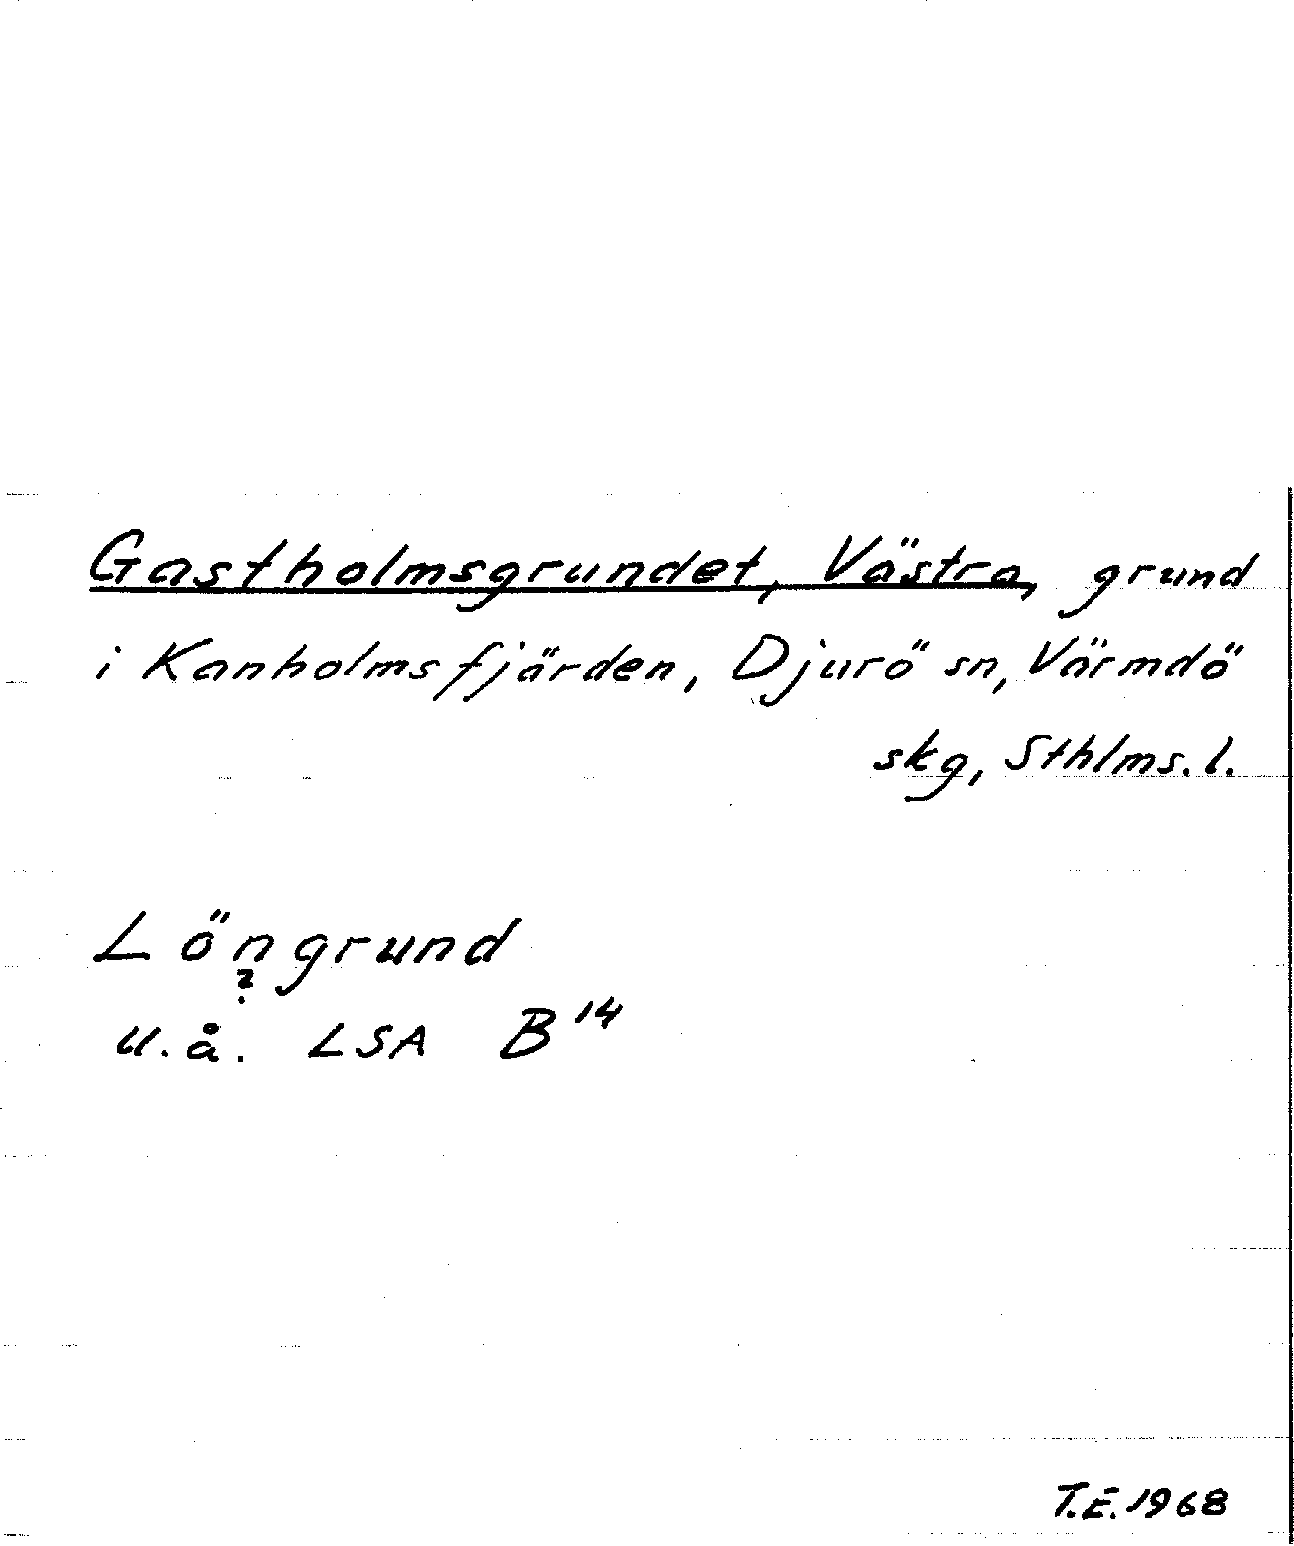 Gastholmsgrundet, Västra, grund
i Kanholmsfjärden, Djurö sn, Värmdö
skg, Sthlms. l.
Löngrund
?
u.å. LSA B¹⁴
T.E. 1968